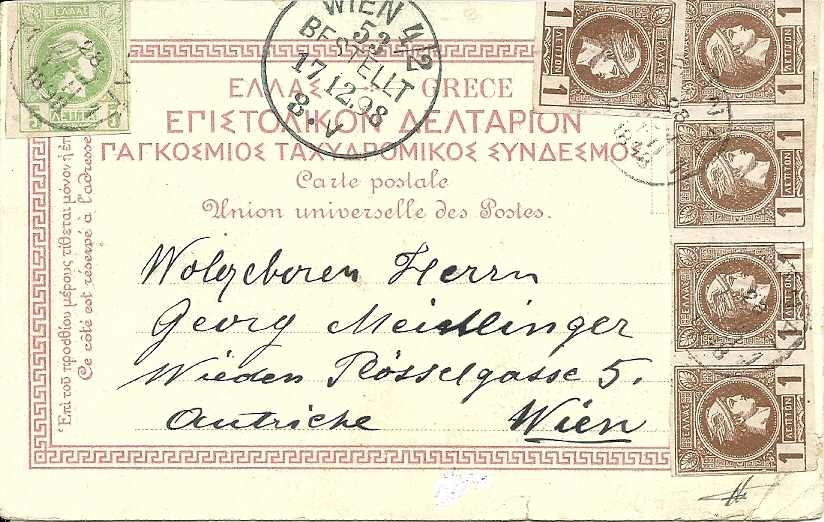 ΕΛΛΑΣ
5 ΛΕΠΤΑ 5
1898
WIEN 4/2
53
BESTELLT
17.12.98
8.V
1 ΛΕΠΤΟΝ 1
ΕΛΛΑΣ
1 ΛΕΠΤΟΝ 1
ΕΛΛΑΣ
1898
ΕΛΛΑΣ GRECE
ΕΠΙΣΤΟΛΙΚΟΝ ΔΕΛΤΑΡΙΟΝ
ΠΑΓΚΟΣΜΙΟΣ ΤΑΧΥΔΡΟΜΙΚΟΣ ΣΥΝΔΕΣΜΟΣ
Carte postale
Union universelle des Postes.
Ἐπὶ τοῦ προσθίου μέρους τίθεται μόνον ἡ
Ce côté est réservé à l'adresse
Wolgeboren Herrn
Georg Meidlinger
Wieden Rösselgasse 5.
Autriche Wien
ΕΛΛΑΣ
1 ΛΕΠΤΟΝ 1
ΕΛΛΑΣ
1 ΛΕΠΤΟΝ 1
ΕΛΛΑΣ
1 ΛΕΠΤΟΝ 1